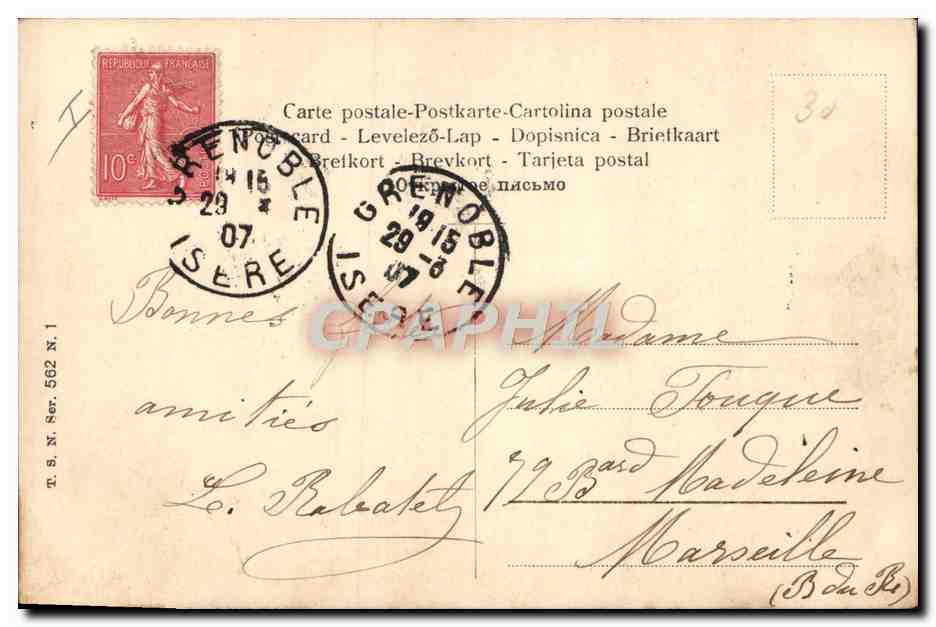 I
REPUBLIQUE FRANÇAISE
10c
30
Carte postale-Postkarte-Cartolina postale
Postcard - Levelező-Lap - Dopisnica - Briefkaart
Brefkort - Brevkort - Tarjeta postal
Открытое письмо
GRENOBLE
19 15
29
07
ISERE
GRENOBLE
19 15
29 -3
07
ISERE
CPAPHIL
Bonnes fêtes
amitiés
L. Rabatel
Madame
Julie Fouque
79 Bard Madeleine
Marseille
(B du R)
T. S. N. Ser. 562 N. 1